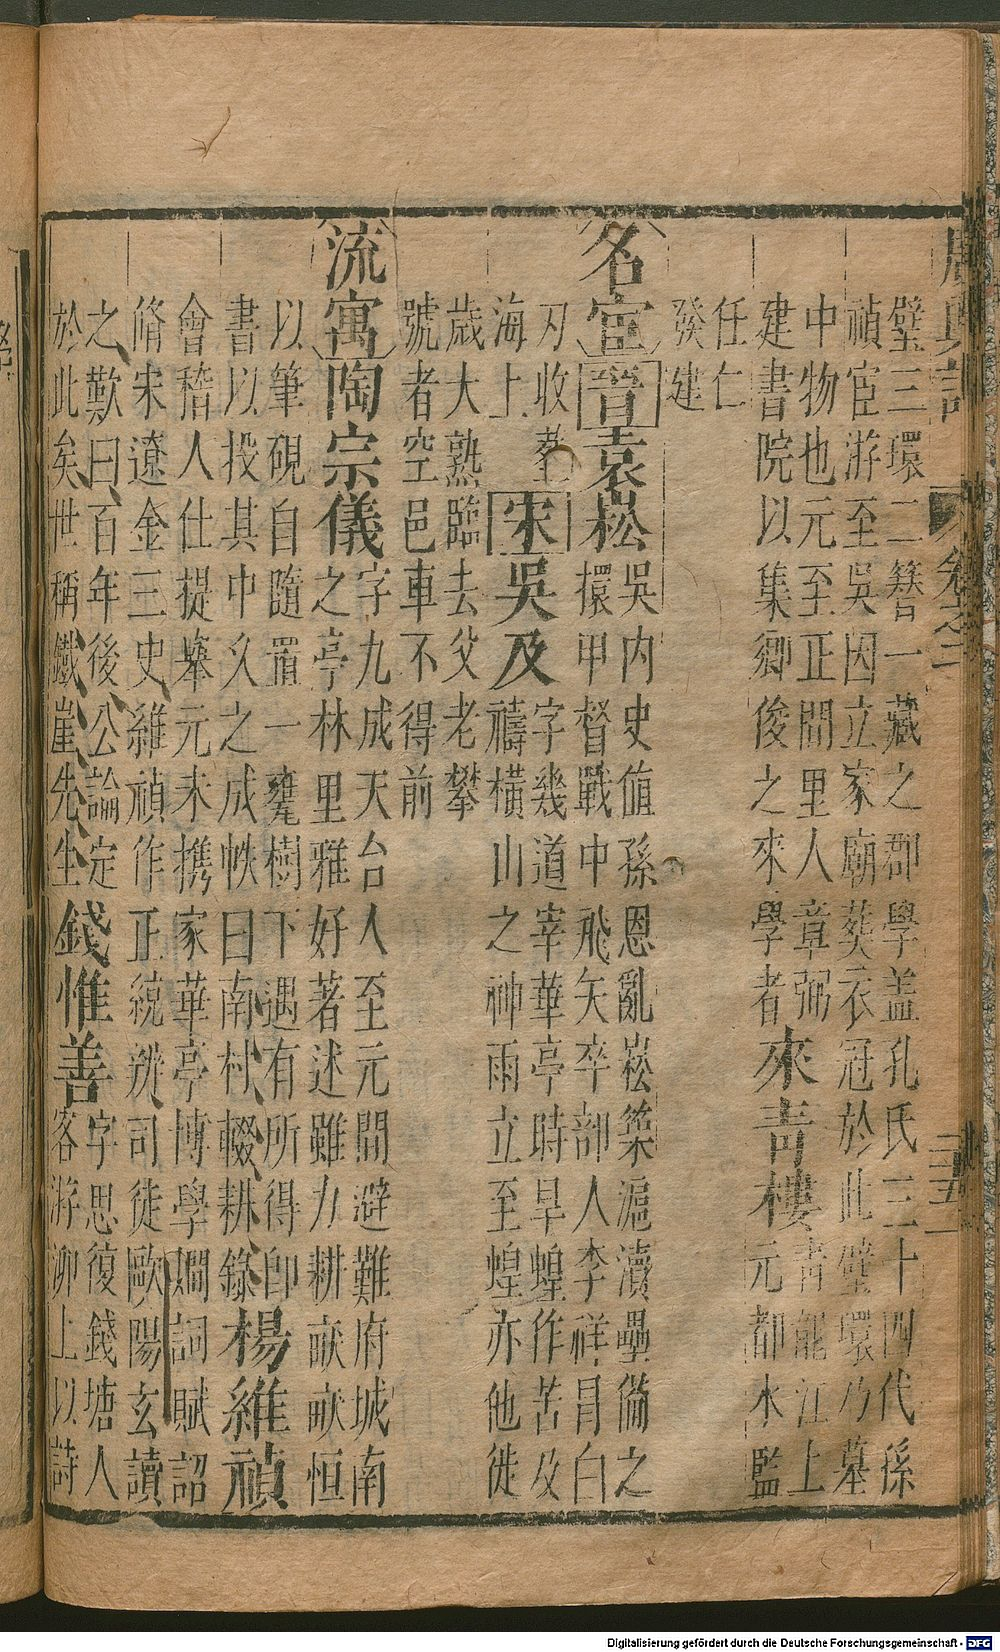 璧三環二簪一藏之郡學盖孔氏三十四代孫
禎宦游至吳因立家廟葬衣冠於此璧環乃墓
中物也元至正間里人章弼
建書院以集鄉俊之來學者
來青樓
青龍江上
元都水監
任仁
發建
名宦
晉袁崧
吳内史值孫恩亂崧築滬瀆壘備之
擐甲督戰中飛矢卒部人李祥冒白
刃收葬
海上
宋吳及
字幾道宰華亭時旱蝗作苦及
禱横山之神雨立至蝗亦他徙
歲大熟臨去父老攀
號者空邑車不得前
流寓
陶宗儀
字九成天台人至元間避難府城南
之亭林里雅好著述雖力耕畎畝恒
以筆硯自隨置一甕樹下遇有所得即
書以投其中久之成帙曰南村輟耕錄
楊維禎
會稽人仕提舉元末携家華亭博學嫻詞賦詔
脩宋遼金三史維禎作正統辨司徒歐陽玄讀
之歎曰百年後公論定
於此矣世稱鐵崖先生
錢惟善
字思復錢塘人
客游泖上以詩
Digitalisierung gefördert durch die Deutsche Forschungsgemeinschaft - DFG